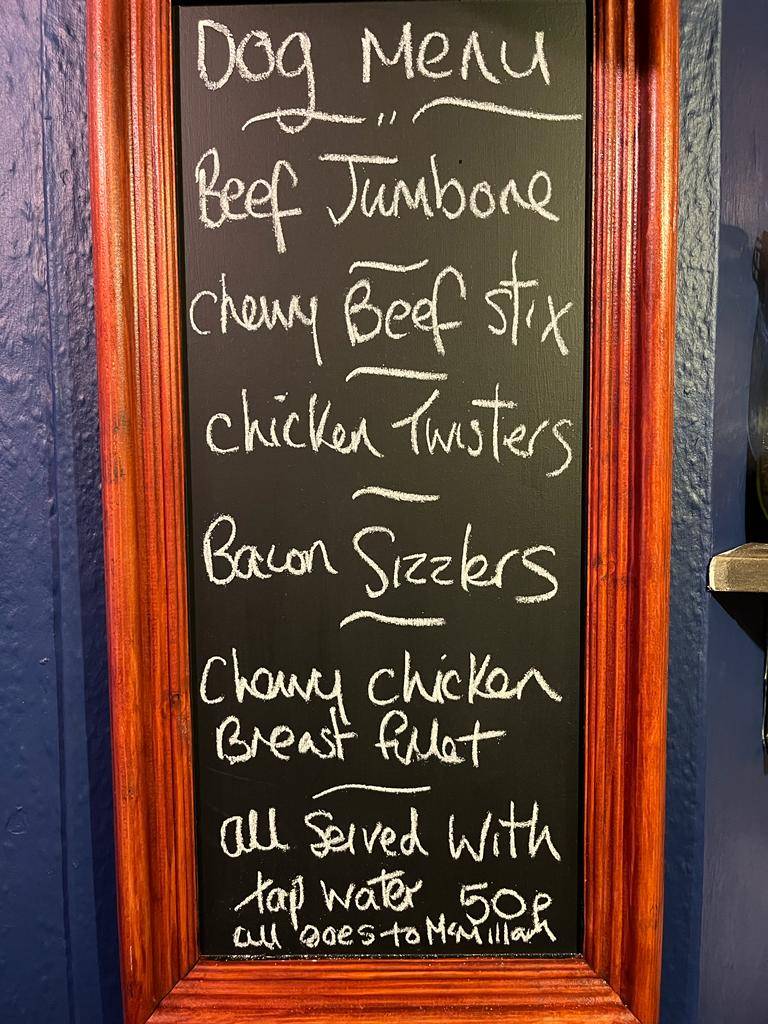 Dog Menu
Beef Jumbone
chewy Beef stix
chicken Twisters
Bacon Sizzlers
Chewy chicken
Breast fillet
all Served With
tap water 50p
all goes to McMillan